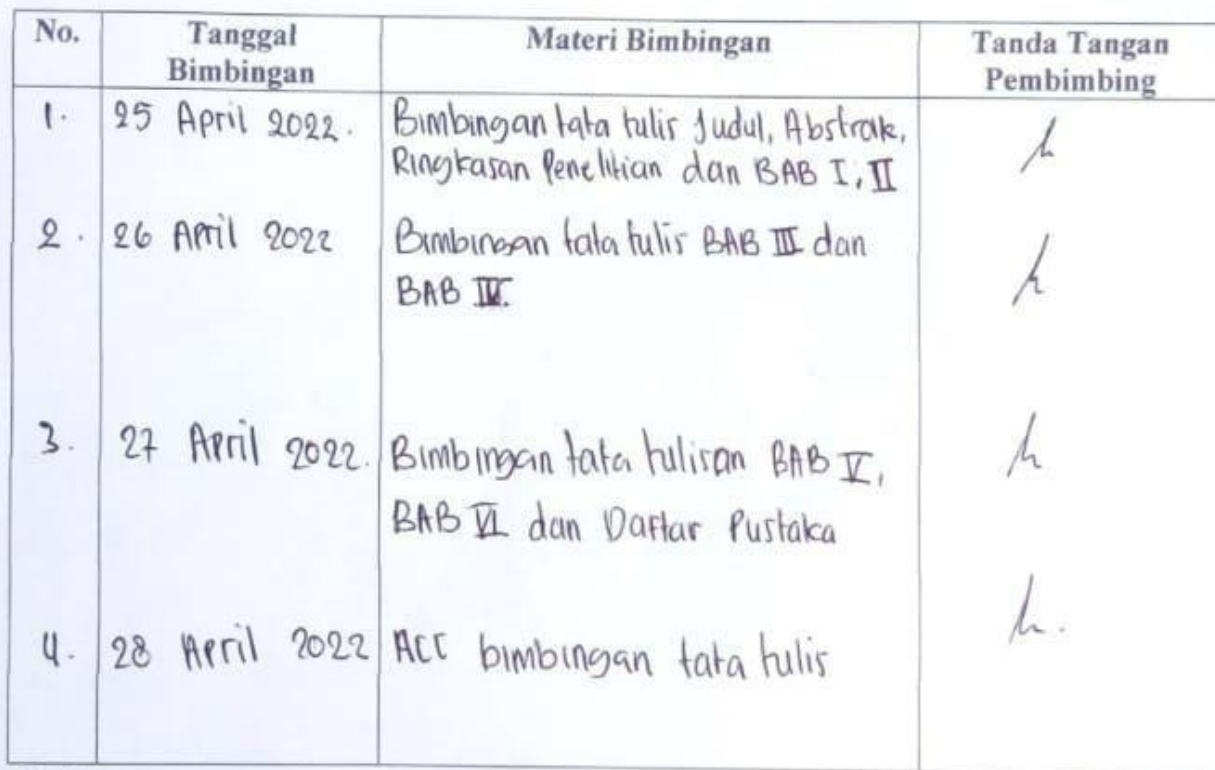 No. Tanggal Bimbingan Materi Bimbingan Tanda Tangan Pembimbing
1. 25 April 2022. Bimbingan tata tulis Judul, Abstrak,
Ringkasan Penelitian dan BAB I, II
2. 26 April 2022 Bimbingan tata tulis BAB III dan
BAB IV.
3. 27 April 2022. Bimbingan tata tulisan BAB V,
BAB VI dan Daftar Pustaka
4. 28 April 2022 ACC bimbingan tata tulis